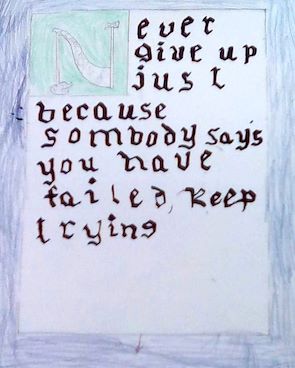 Never
give up
just
because
sombody says
you have
failed, Keep
trying